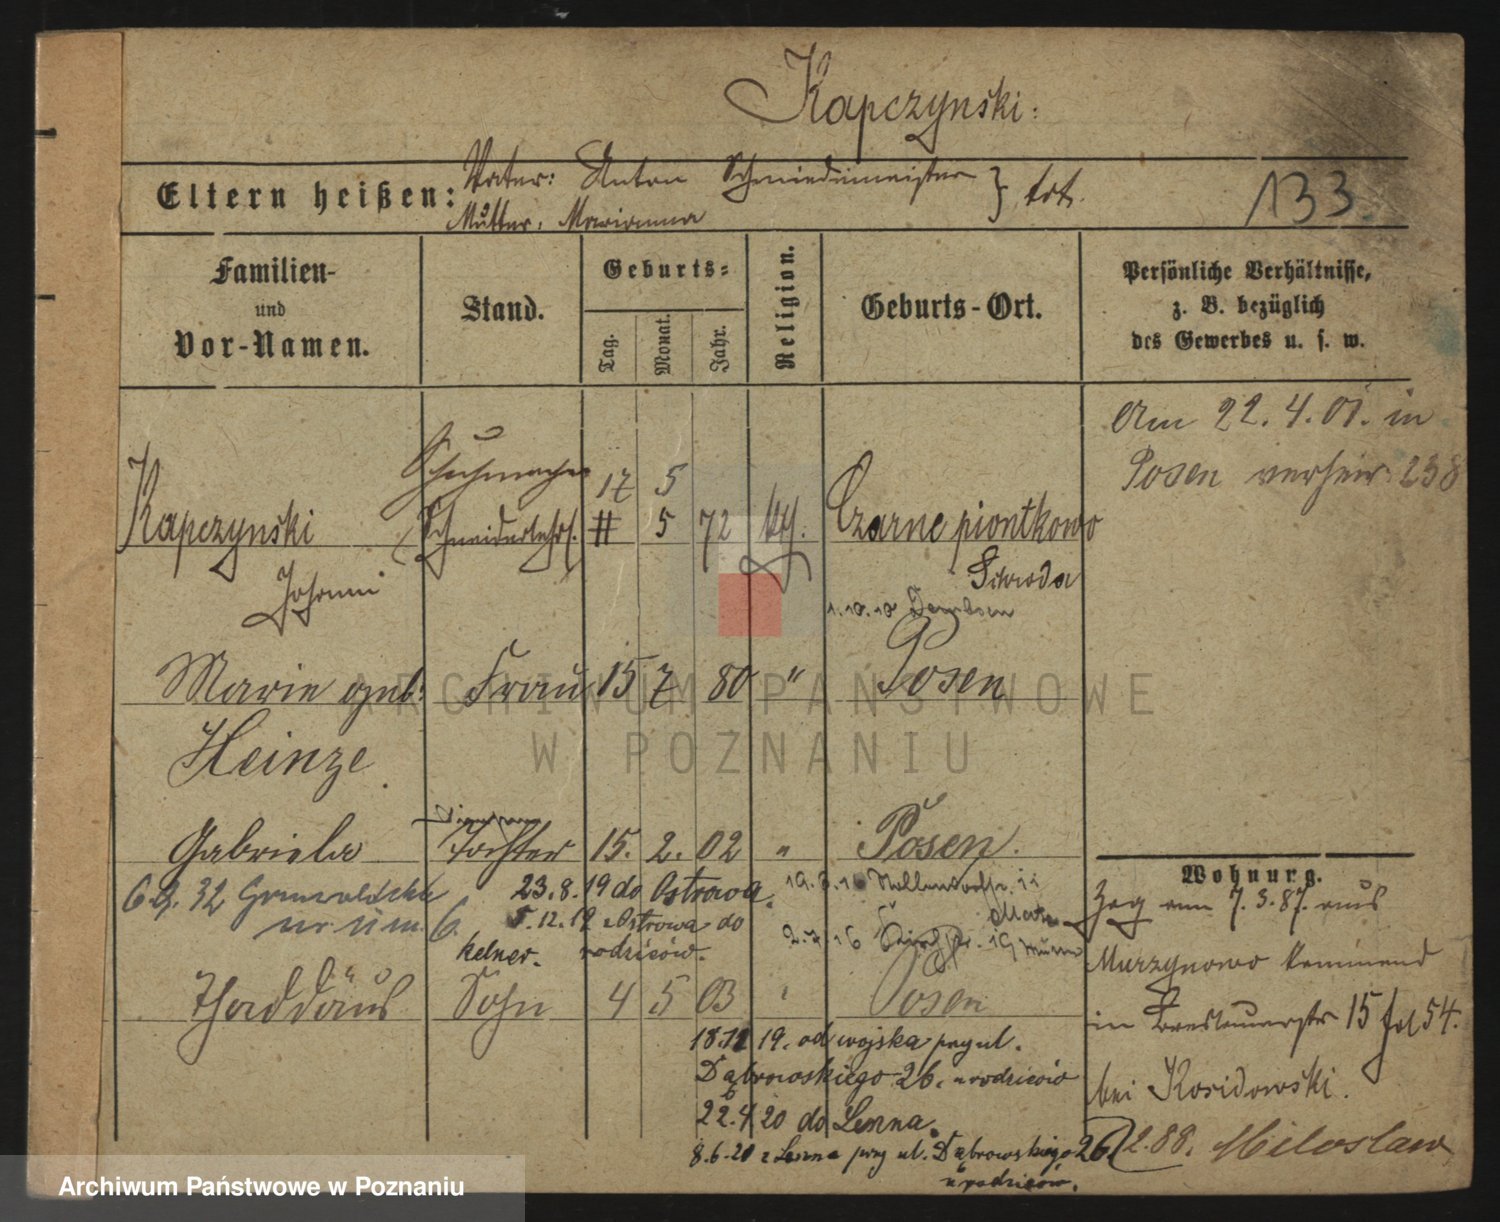 Kapczynski:
Eltern heißen:
Vater: Anton Schmiedemeister } tot.
Mutter: Marianna
133.
Familien-
und
Vor-Namen.
Stand.
Geburts-
Tag.
Monat.
Jahr.
Religion.
Geburts-Ort.
Persönliche Verhältnisse,
z. B. bezüglich
des Gewerbes u. s. w.
Am 22.4.01. in
Posen verheir. 238
Schuhmacher
17 5
Kapczynski Schneiderlehrl. 5 72 kth. Czarne piontkowo
Johann
Schroda
1.10.10
Marie geb. Frau 15 7 80 " Posen
Heinze
Gabriela Tochter 15. 2. 02 " Posen.
23.8.19 do Ostrowa.
5.12.19 z Ostrowa do
kelner. rodziców.
2.7.16
Thaddäus Sohn 4 5 03 " Posen
18.12 19. od wojska przy ul.
Dąbrowskiego 26. u rodziców
22.4 20 do Lenna.
8.6.20 z Lenna przy ul. Dąbrowskiego 26
u rodziców.
Wohnung.
Zog am 7.3.87. aus
Murzynowo kommend
in Breslauerstr 15 fol 54.
bei Kosidowski.
2.88. Miloslaw
ARCHIWUM PAŃSTWOWE
W POZNANIU
Archiwum Państwowe w Poznaniu